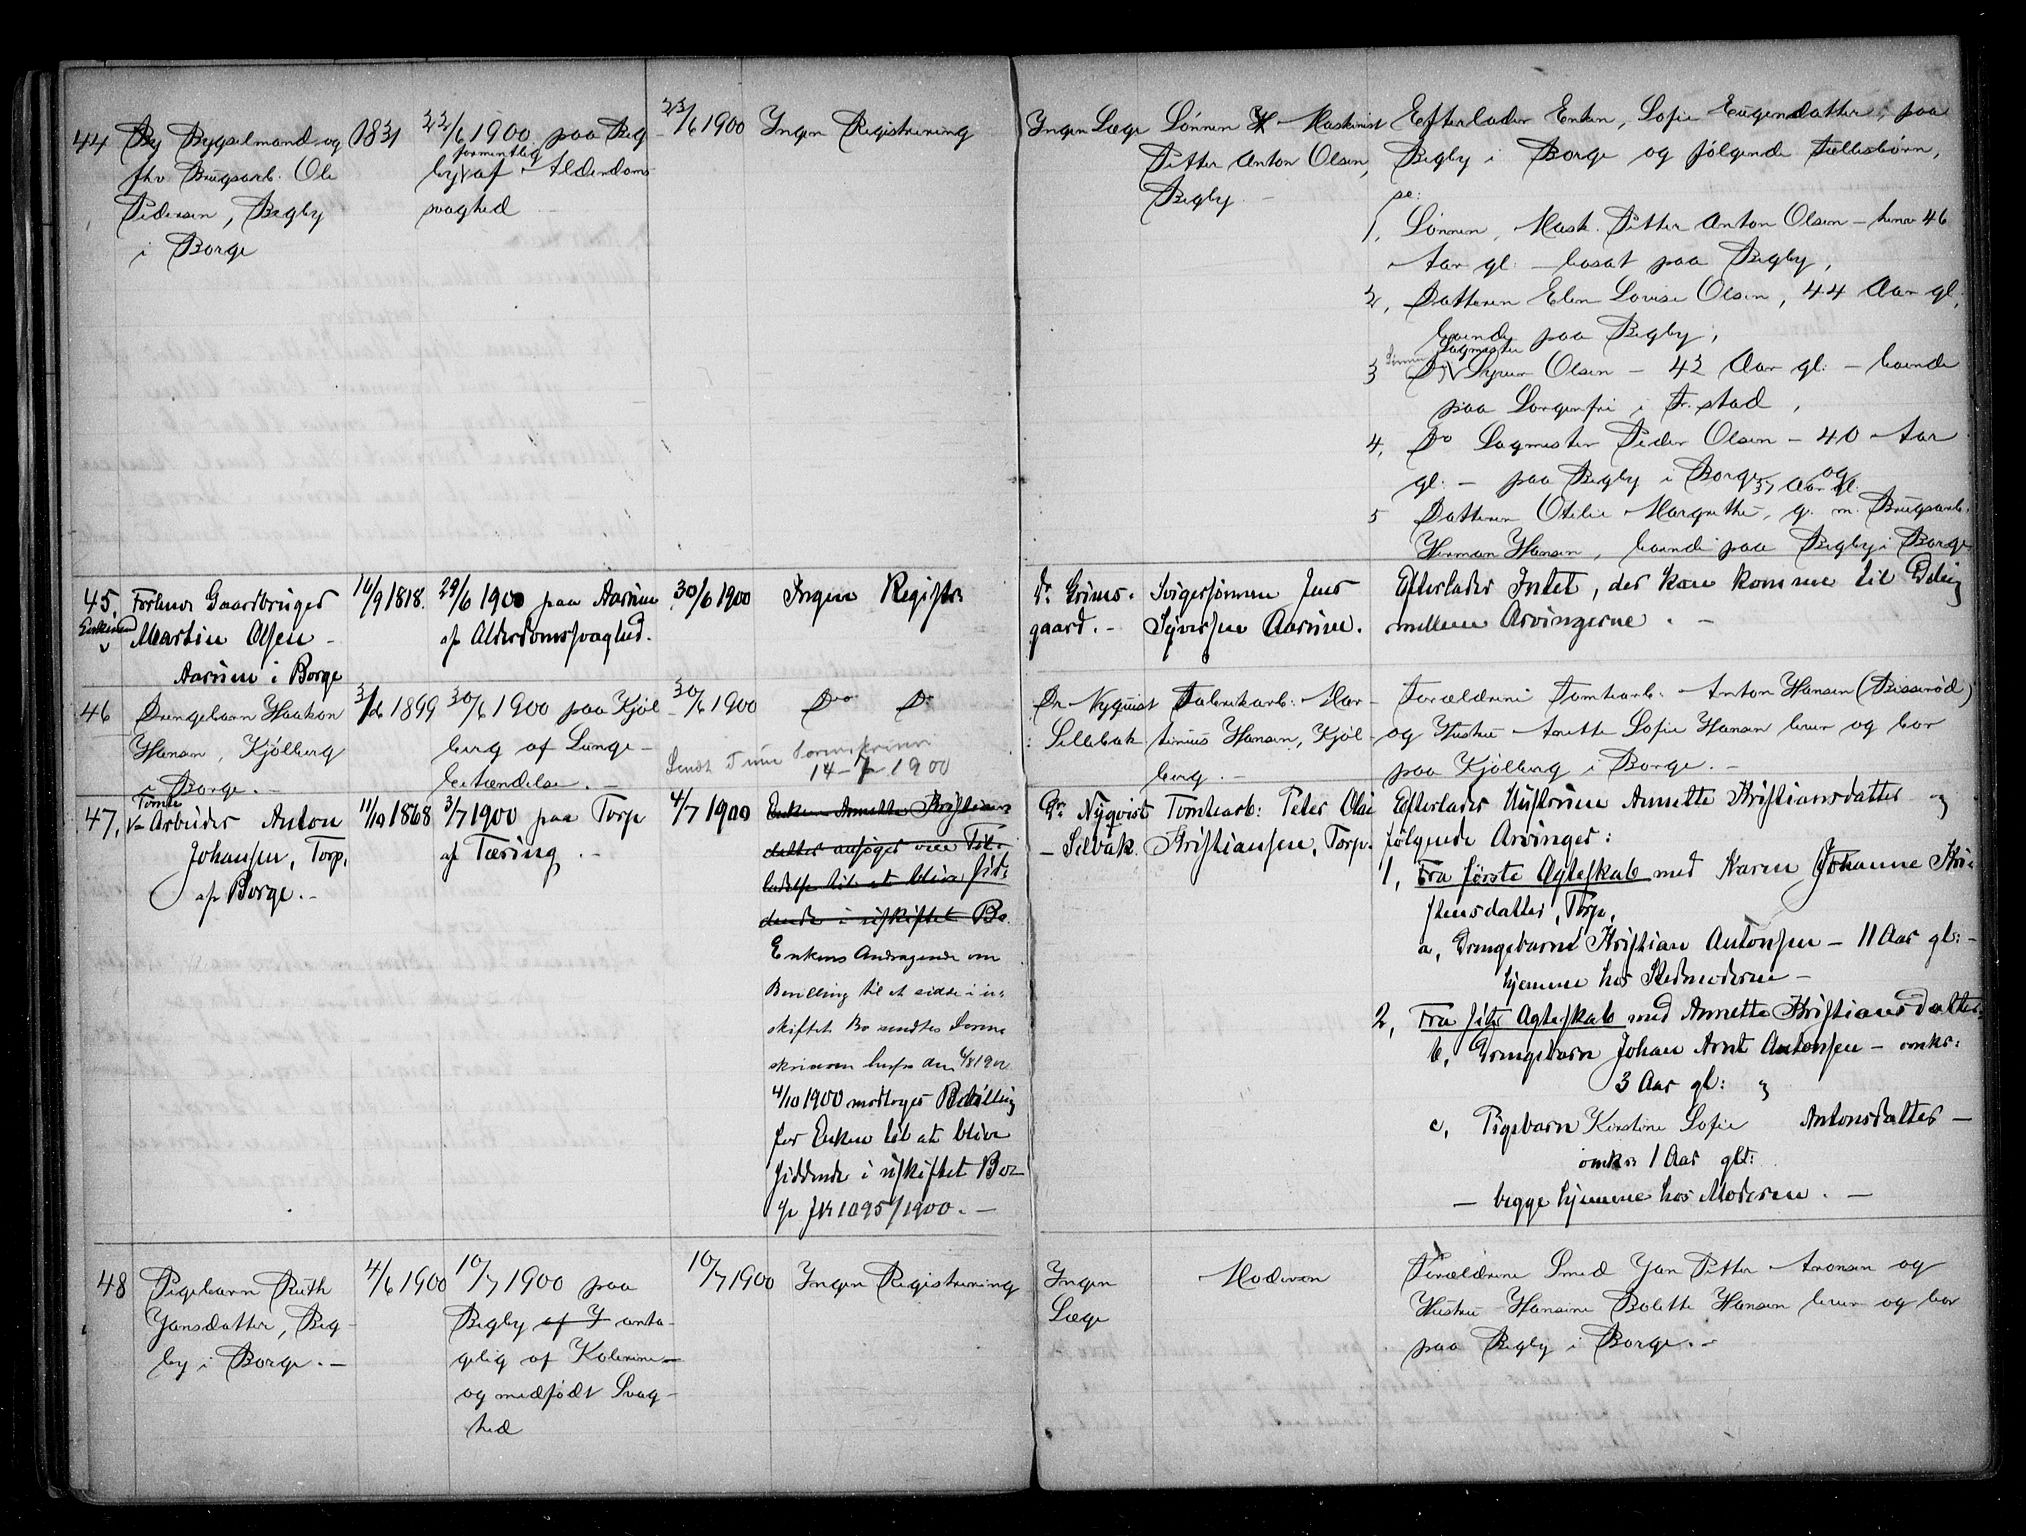 44 By Bygselmand og
fhv. Brugsarb. Ole
Pedersen, Begby
i Borge
1831
22/6 1900 paa Beg-
formentlig
by af Alderdoms
svaghed
23/6 1900
Ingen Registrering
Ingen Læge
Sønnen Maskinist
Petter Anton Olsen,
Begby.
Efterlader Enken, Sofie Eugensdatter, paa
Begby i Borge og følgende Fællesbørn,
se:
1, Sønnen, Mask. Petter Anton Olsen – henv 46
Aar gl: – bosat paa Begby,
2, Datteren Elen Lovise Olsen, 44 Aar gl,
boende paa Begby,
Sønnen Sagmester
3 Do Syver Olsen – 42 Aar gl: – boende
paa Sorgenfri i Fr. stad,
4, Do Sagmester Peder Olsen – 40 Aar
gl: – paa Begby i Borge og
37 Aar gl.
5 Datteren Otelie Margrethe, g. m. Brugsarb.
Herman Hansen, boende paa Begby i Borge
45, Forhenv Gaardbruger
Enkemand
Martin Olsen –
Aarum i Borge
14/9 1818.
29/6 1900 paa Aarum
af Alderdomssvaghed.
30/6 1900
Ingen Registr:
Dr. Grims-
gaard. –
Svigersønnen Jens
Syversen Aarum.
Efterlader Intet, der kan komme til Deling
mellem Arvingerne. –
46 Drengebarn Haakon
Hansen, Kjølberg
i Borge. –
3/6 1899
30/6 1900 paa Kjøl-
berg af Lunge-
betændelse. –
30/6 1900
Do Do
Sendt Tune Sorenskriveri
14-7-1900
Dr. Nyquist
: Sellebak
Fabrikarb: Mar-
tinius Hansen, Kjøl-
berg. –
Forældrene Tomtearb: Anton Hansen (Bisserød)
og Hustru Anette Sofie Hansen lever og bor
paa Kjølberg i Borge. –
47, Tomte
Arbeider Anton
Johansen, Torp,
af Borge. –
11/10 1868
3/7 1900 paa Torp
af Tæring. –
4/7 1900
Enken Annette Kristians-
datter ansøger om Til-
ladelse til at blive sid-
dende i uskiftet Bo.
Enkens Andragende om
Bevilling til at sidde i u-
skiftet Bo sendtes Soren-
skriveren herfra den 4/8 1900
4/10 1900 modtoges Bevilling
for Enken til at blive
siddende i uskiftet Bo–
cfr JN 1095/1900. –
Dr. Nyqvist
– Selbak.
Tomtearb: Peter Olai
Kristiansen, Torp.
Efterlader Hustruen Annette Kristiansdatter og
følgende Arvinger:
1, Fra første Ægteskab med Karen Johanne Kri-
stensdatter, Torp,
a, Drengebarnet Kristian Antonsen – 11 Aar gl: –
hjemme hos Stedmoderen –
2, Fra sidste Ægteskab med Annette Kristiansdatter,
b, Drengebarn Johan Arnt Antonsen – omkr:
3 Aar gl: og
c, Pigebarn Kirstine Sofie Antonsdatter –
omkr 1 Aar glt:
– begge hjemme hos Moderen. –
48 Pigebarn Ruth
Jansdatter, Beg-
by i Borge. –
4/6 1900
10/7 1900 paa
Begby af I anta-
gelig af Kolerine –
og medfødt Svag-
hed
10/7 1900
Ingen Registrering
Ingen
Læge
Moderen
Forældrene Smed Jan Petter Aronsen og
Hustru Hansine Bolette Hansen lever og bor
paa Begby i Borge. –